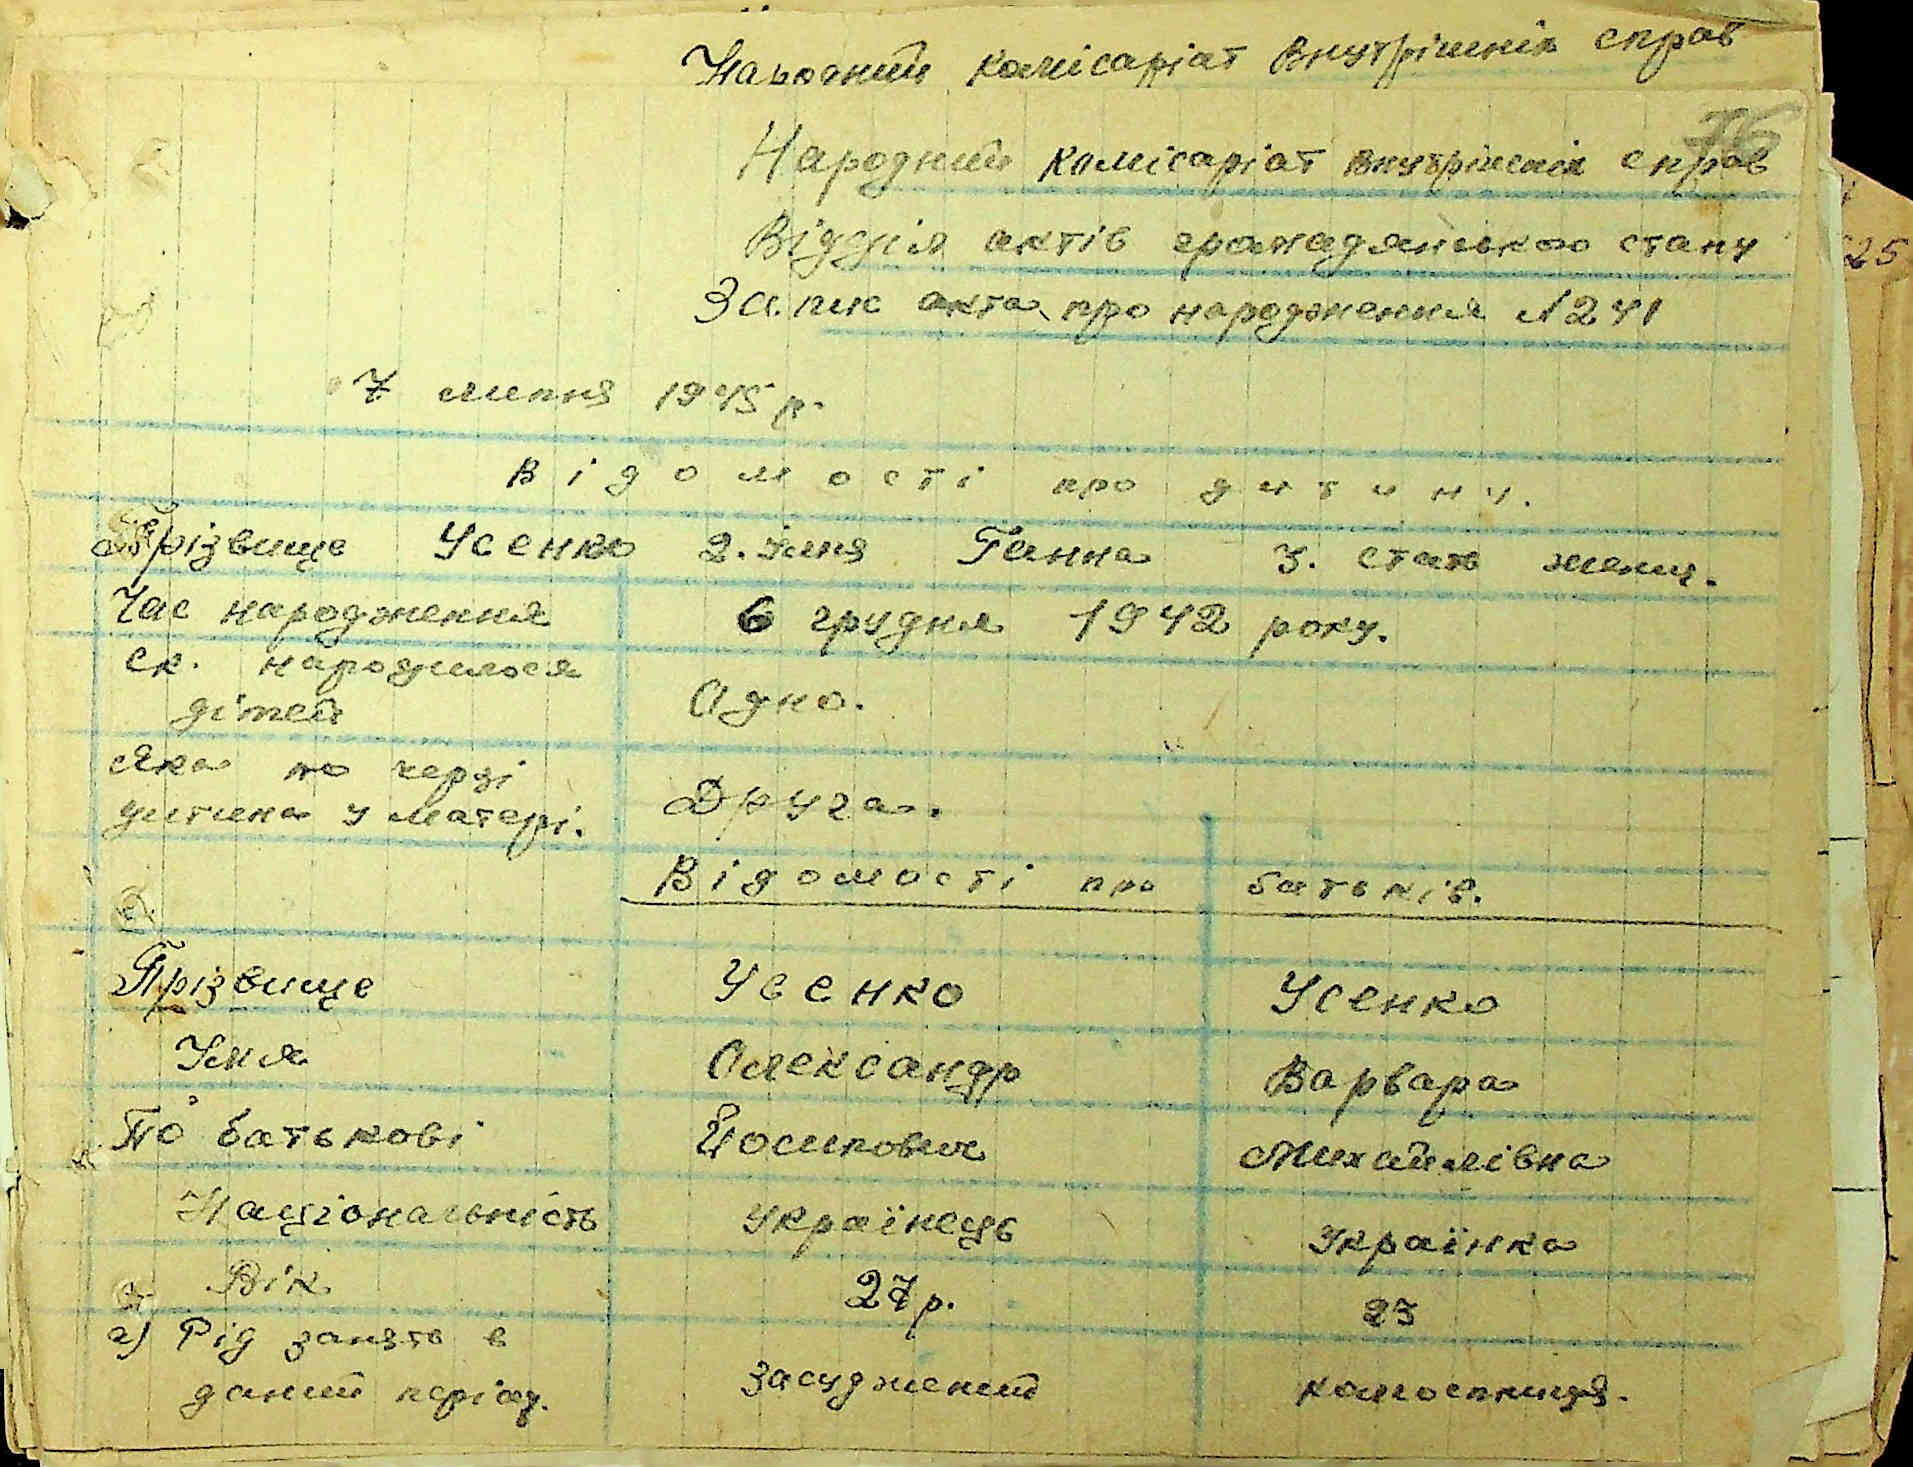 Народний комісаріат внутрішніх справ
76
Народний комісаріат внутрішніх справ
Відділ актів громадянського стану
25
Запис акта про народження №241
7 липня 1945 р.
Відомості про дитину.
Прізвище Усенко 2. Імня Ганна 3. стать жіноч.
Час народження 6 грудня 1942 року.
ск. народилося
дітей Одно.
Яка по черзі
дитина у матері. Друга.
Відомості про батьків.
Прізвище Усенко Усенко
Імня Олександр Варвара
По батькові Йосипович Михайлівна
Національність Українець Українка
Вік 27 р. 23
а) Рід занять в
даний період. засуджений колгоспниця.